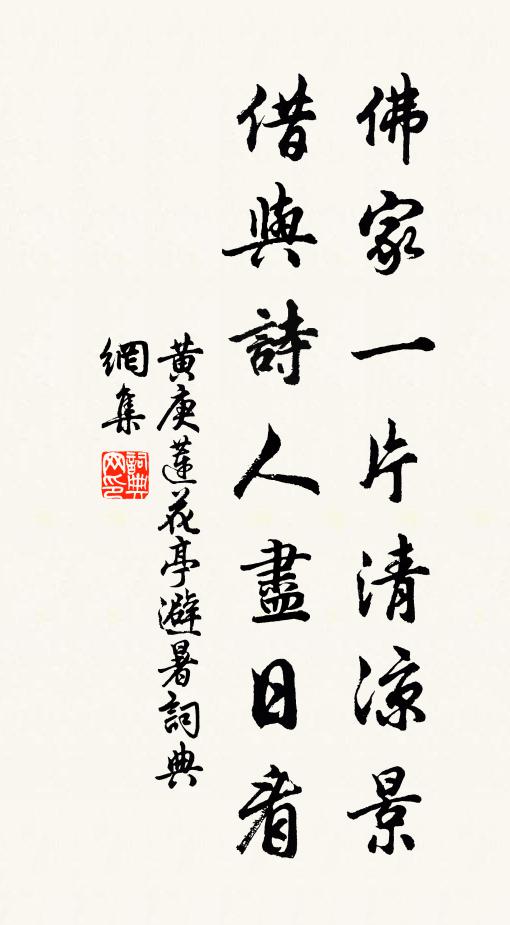 佛家一片清涼景
借與詩人盡日看
黃庚蓮花亭避暑詞典
網集
詞典
网印